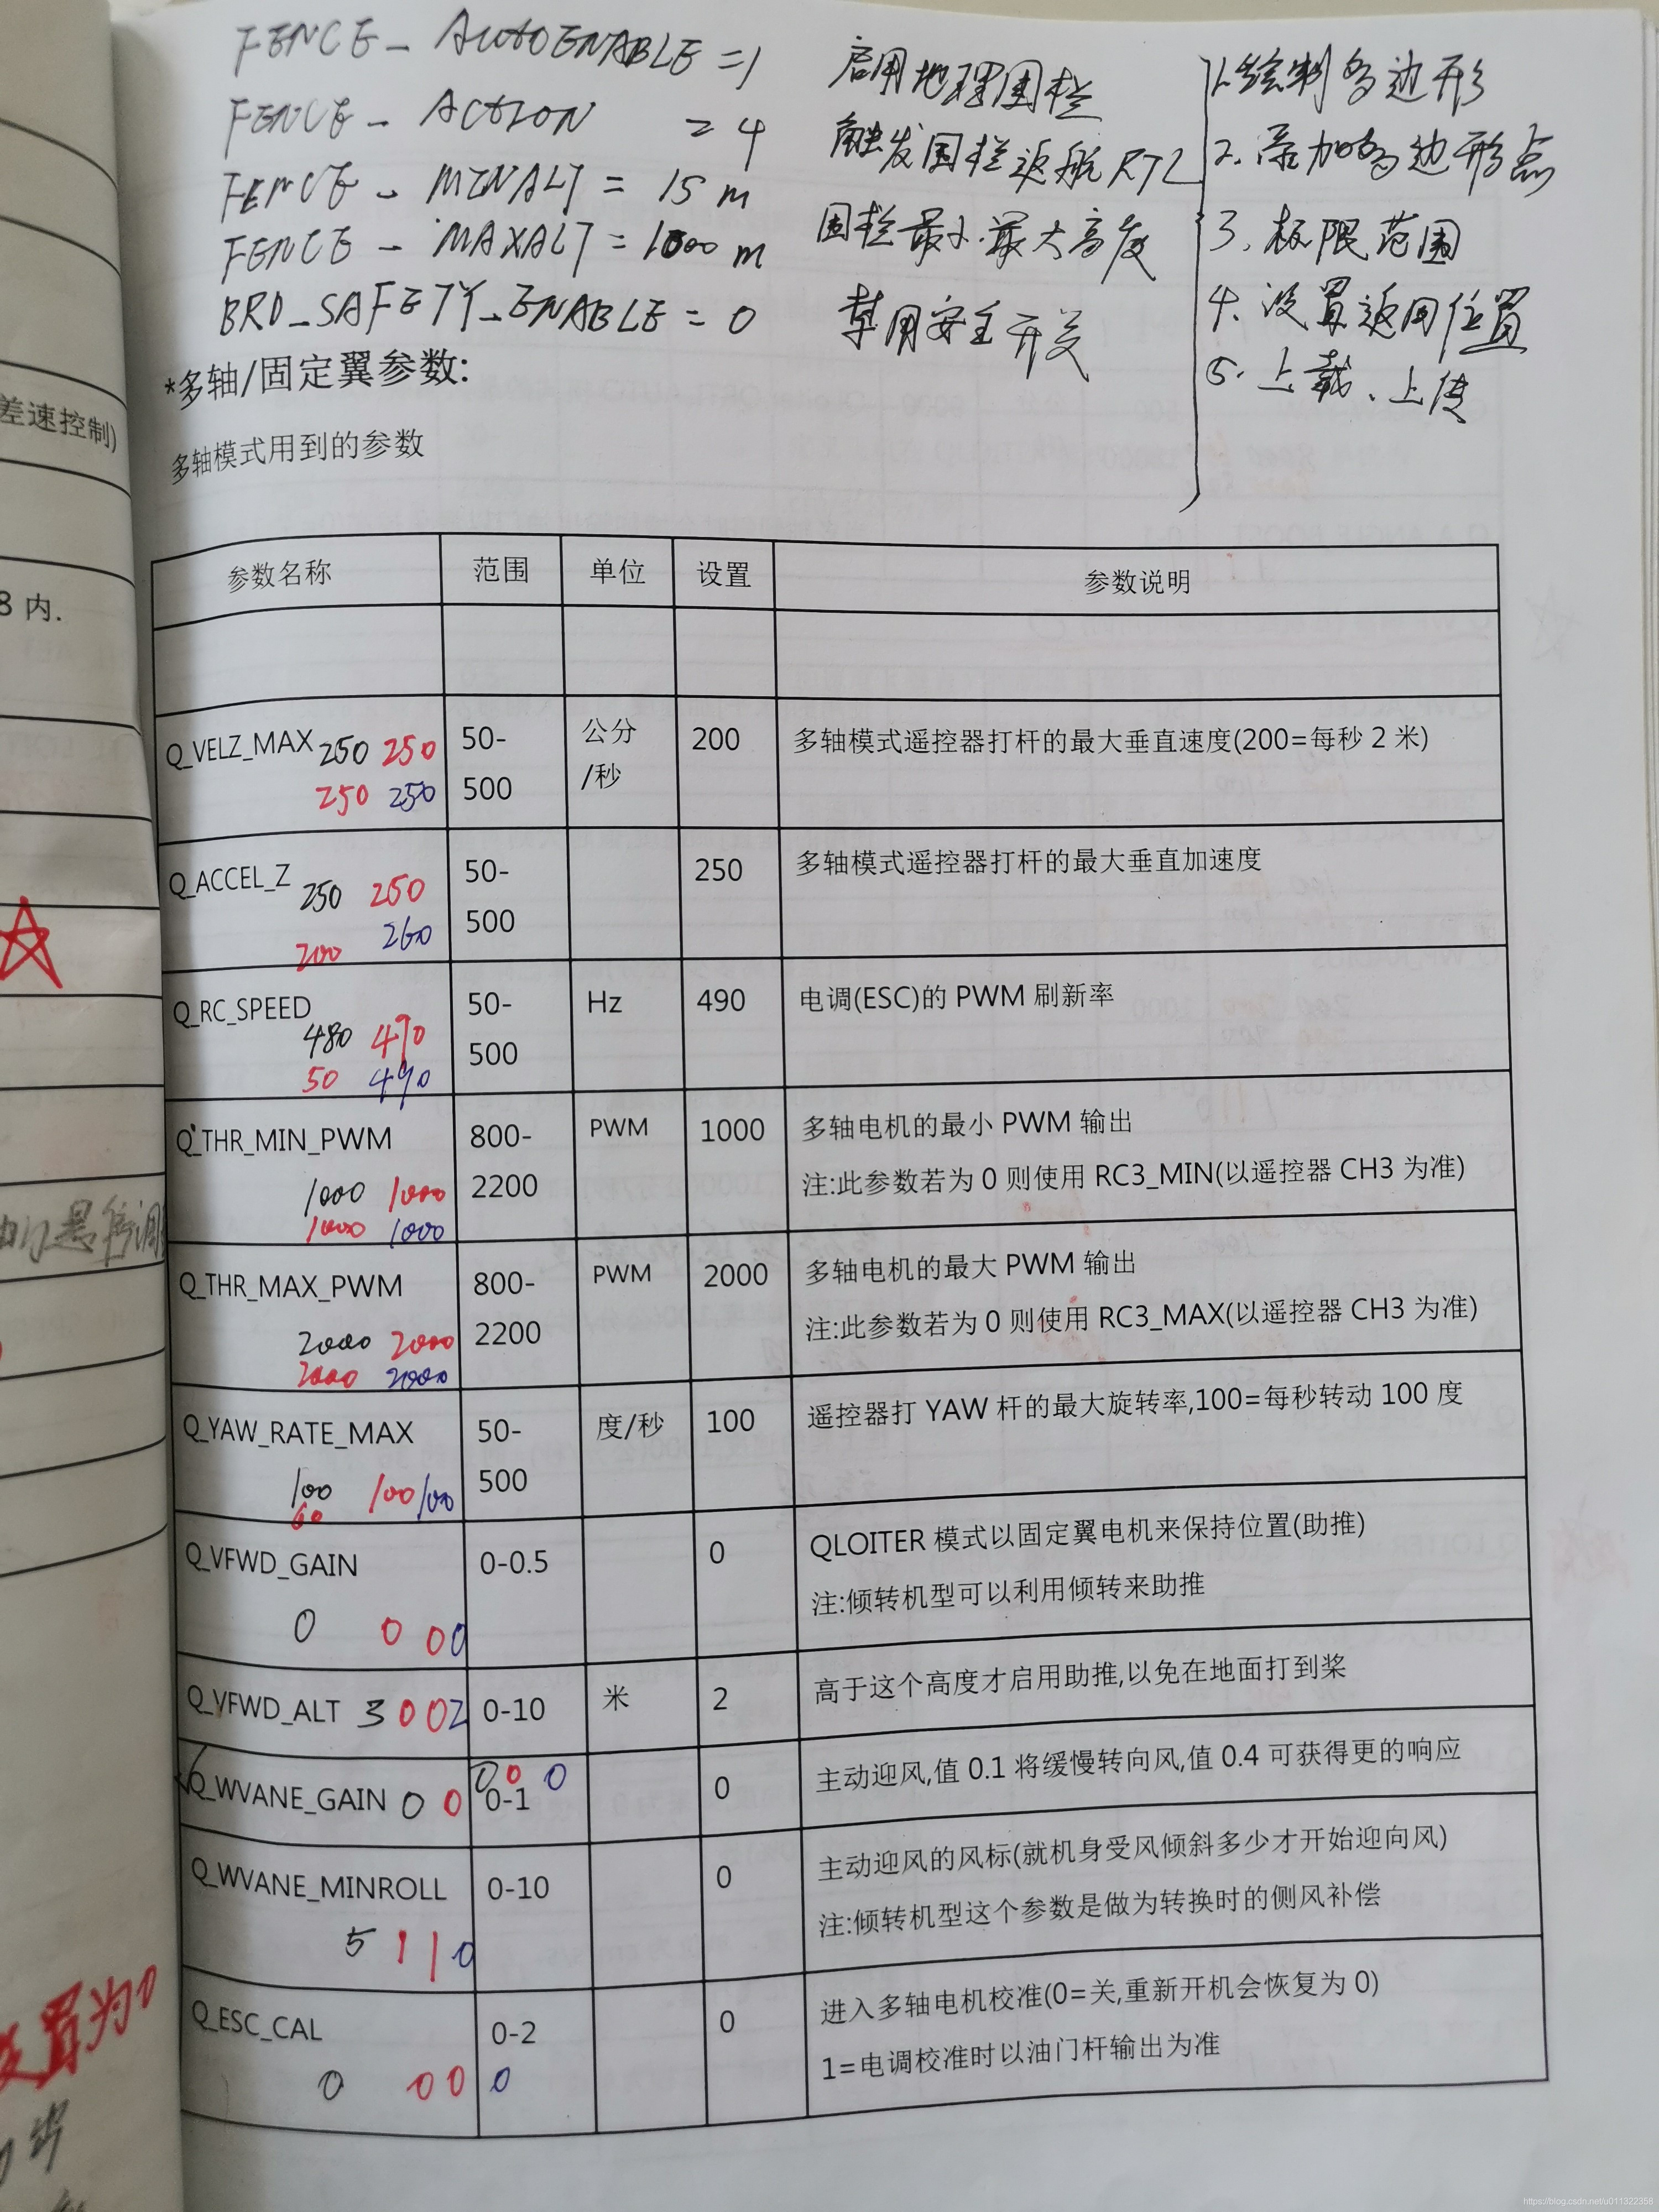 FENCE_AUTOENABLE =1 启用地理围栏
FENCE_ACTION = 4 触发围栏返航RTL
FENCE_MINALT = 15 m
FENCE_MAXALT = 1000 m 围栏最小.最大高度
BRD_SAFETY_ENABLE = 0 禁用安全开关
1.绘制多边形
2.添加多边形点
3.极限范围
4.设置返回位置
5.上载、上传
*多轴/固定翼参数:
多轴模式用到的参数
差速控制)
8 内.
参数名称 范围 单位 设置 参数说明
Q_VELZ_MAX 250 250 50- 公分 200 多轴模式遥控器打杆的最大垂直速度(200=每秒 2 米)
250 250 500 /秒
Q_ACCEL_Z 250 250 50- 250 多轴模式遥控器打杆的最大垂直加速度
200 260 500
Q_RC_SPEED 50- Hz 490 电调(ESC)的 PWM 刷新率
480 490 500
50 490
Q_THR_MIN_PWM 800- PWM 1000 多轴电机的最小 PWM 输出
1000 1000 2200 注:此参数若为 0 则使用 RC3_MIN(以遥控器 CH3 为准)
1000 1000
Q_THR_MAX_PWM 800- PWM 2000 多轴电机的最大 PWM 输出
2000 2000 2200 注:此参数若为 0 则使用 RC3_MAX(以遥控器 CH3 为准)
2000 2000
Q_YAW_RATE_MAX 50- 度/秒 100 遥控器打 YAW 杆的最大旋转率,100=每秒转动 100 度
100 100 100 500
60
Q_VFWD_GAIN 0-0.5 0 QLOITER 模式以固定翼电机来保持位置(助推)
0 0 0 0 注:倾转机型可以利用倾转来助推
Q_VFWD_ALT 3 0 0 2 0-10 米 2 高于这个高度才启用助推,以免在地面打到桨
0 0 0
Q_WVANE_GAIN 0 0 0-1 0 主动迎风,值 0.1 将缓慢转向风,值 0.4 可获得更的响应
Q_WVANE_MINROLL 0-10 0 主动迎风的风标(就机身受风倾斜多少才开始迎向风)
5 1 1 0 注:倾转机型这个参数是做为转换时的侧风补偿
Q_ESC_CAL 0-2 0 进入多轴电机校准(0=关,重新开机会恢复为 0)
0 0 0 0 1=电调校准时以油门杆输出为准
设置为0
https://blog.csdn.net/u011322358